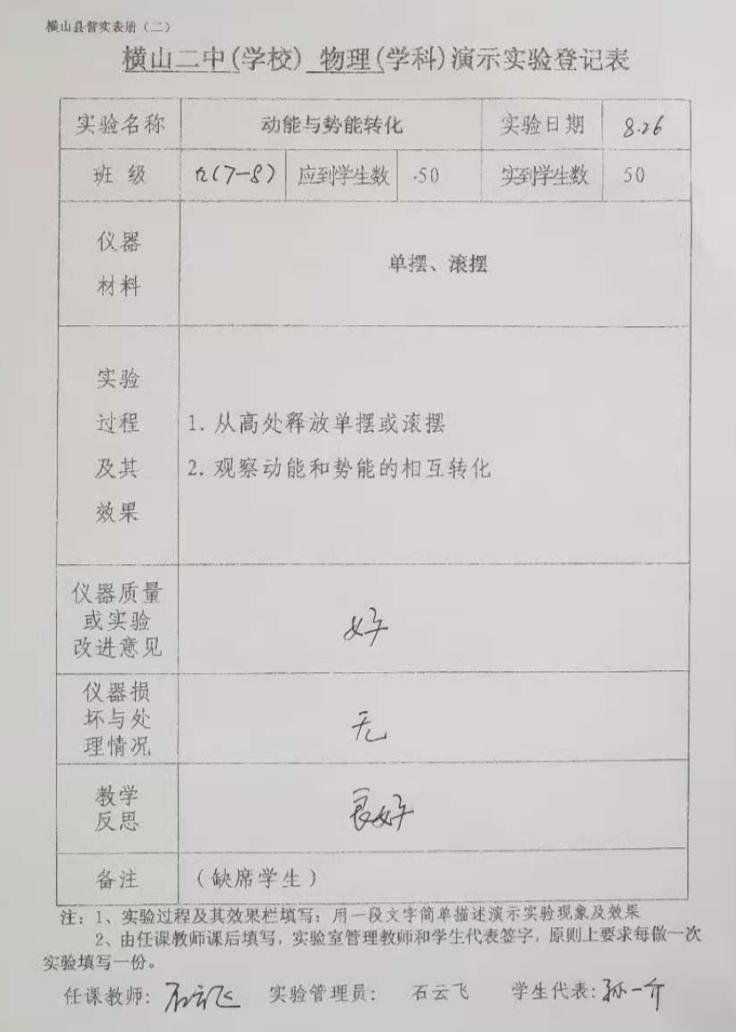 横山县督实表册（二）
横山二中(学校) 物理(学科)演示实验登记表
实验名称 动能与势能转化 实验日期 8.26
班 级 (7-8) 应到学生数 50 实到学生数 50
仪器
材料
单摆、滚摆
实验
过程
及其
效果
1. 从高处释放单摆或滚摆
2. 观察动能和势能的相互转化
仪器质量
或实验
改进意见
好
仪器损
坏与处
理情况
无
教学
反思
良好
备注 （缺席学生）
注：1、实验过程及其效果栏填写：用一段文字简单描述演示实验现象及效果
2、由任课教师课后填写，实验室管理教师和学生代表签字，原则上要求每做一次
实验填写一份。
任课教师: 石云飞 实验管理员： 石云飞 学生代表: 孙一介